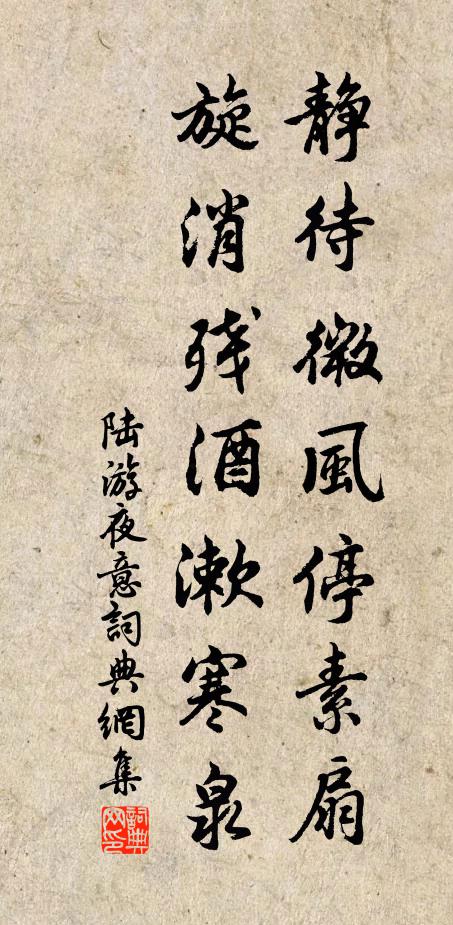 静待微風停素扇
旋消残酒漱寒泉
陆游夜意詞典網集
詞典网印